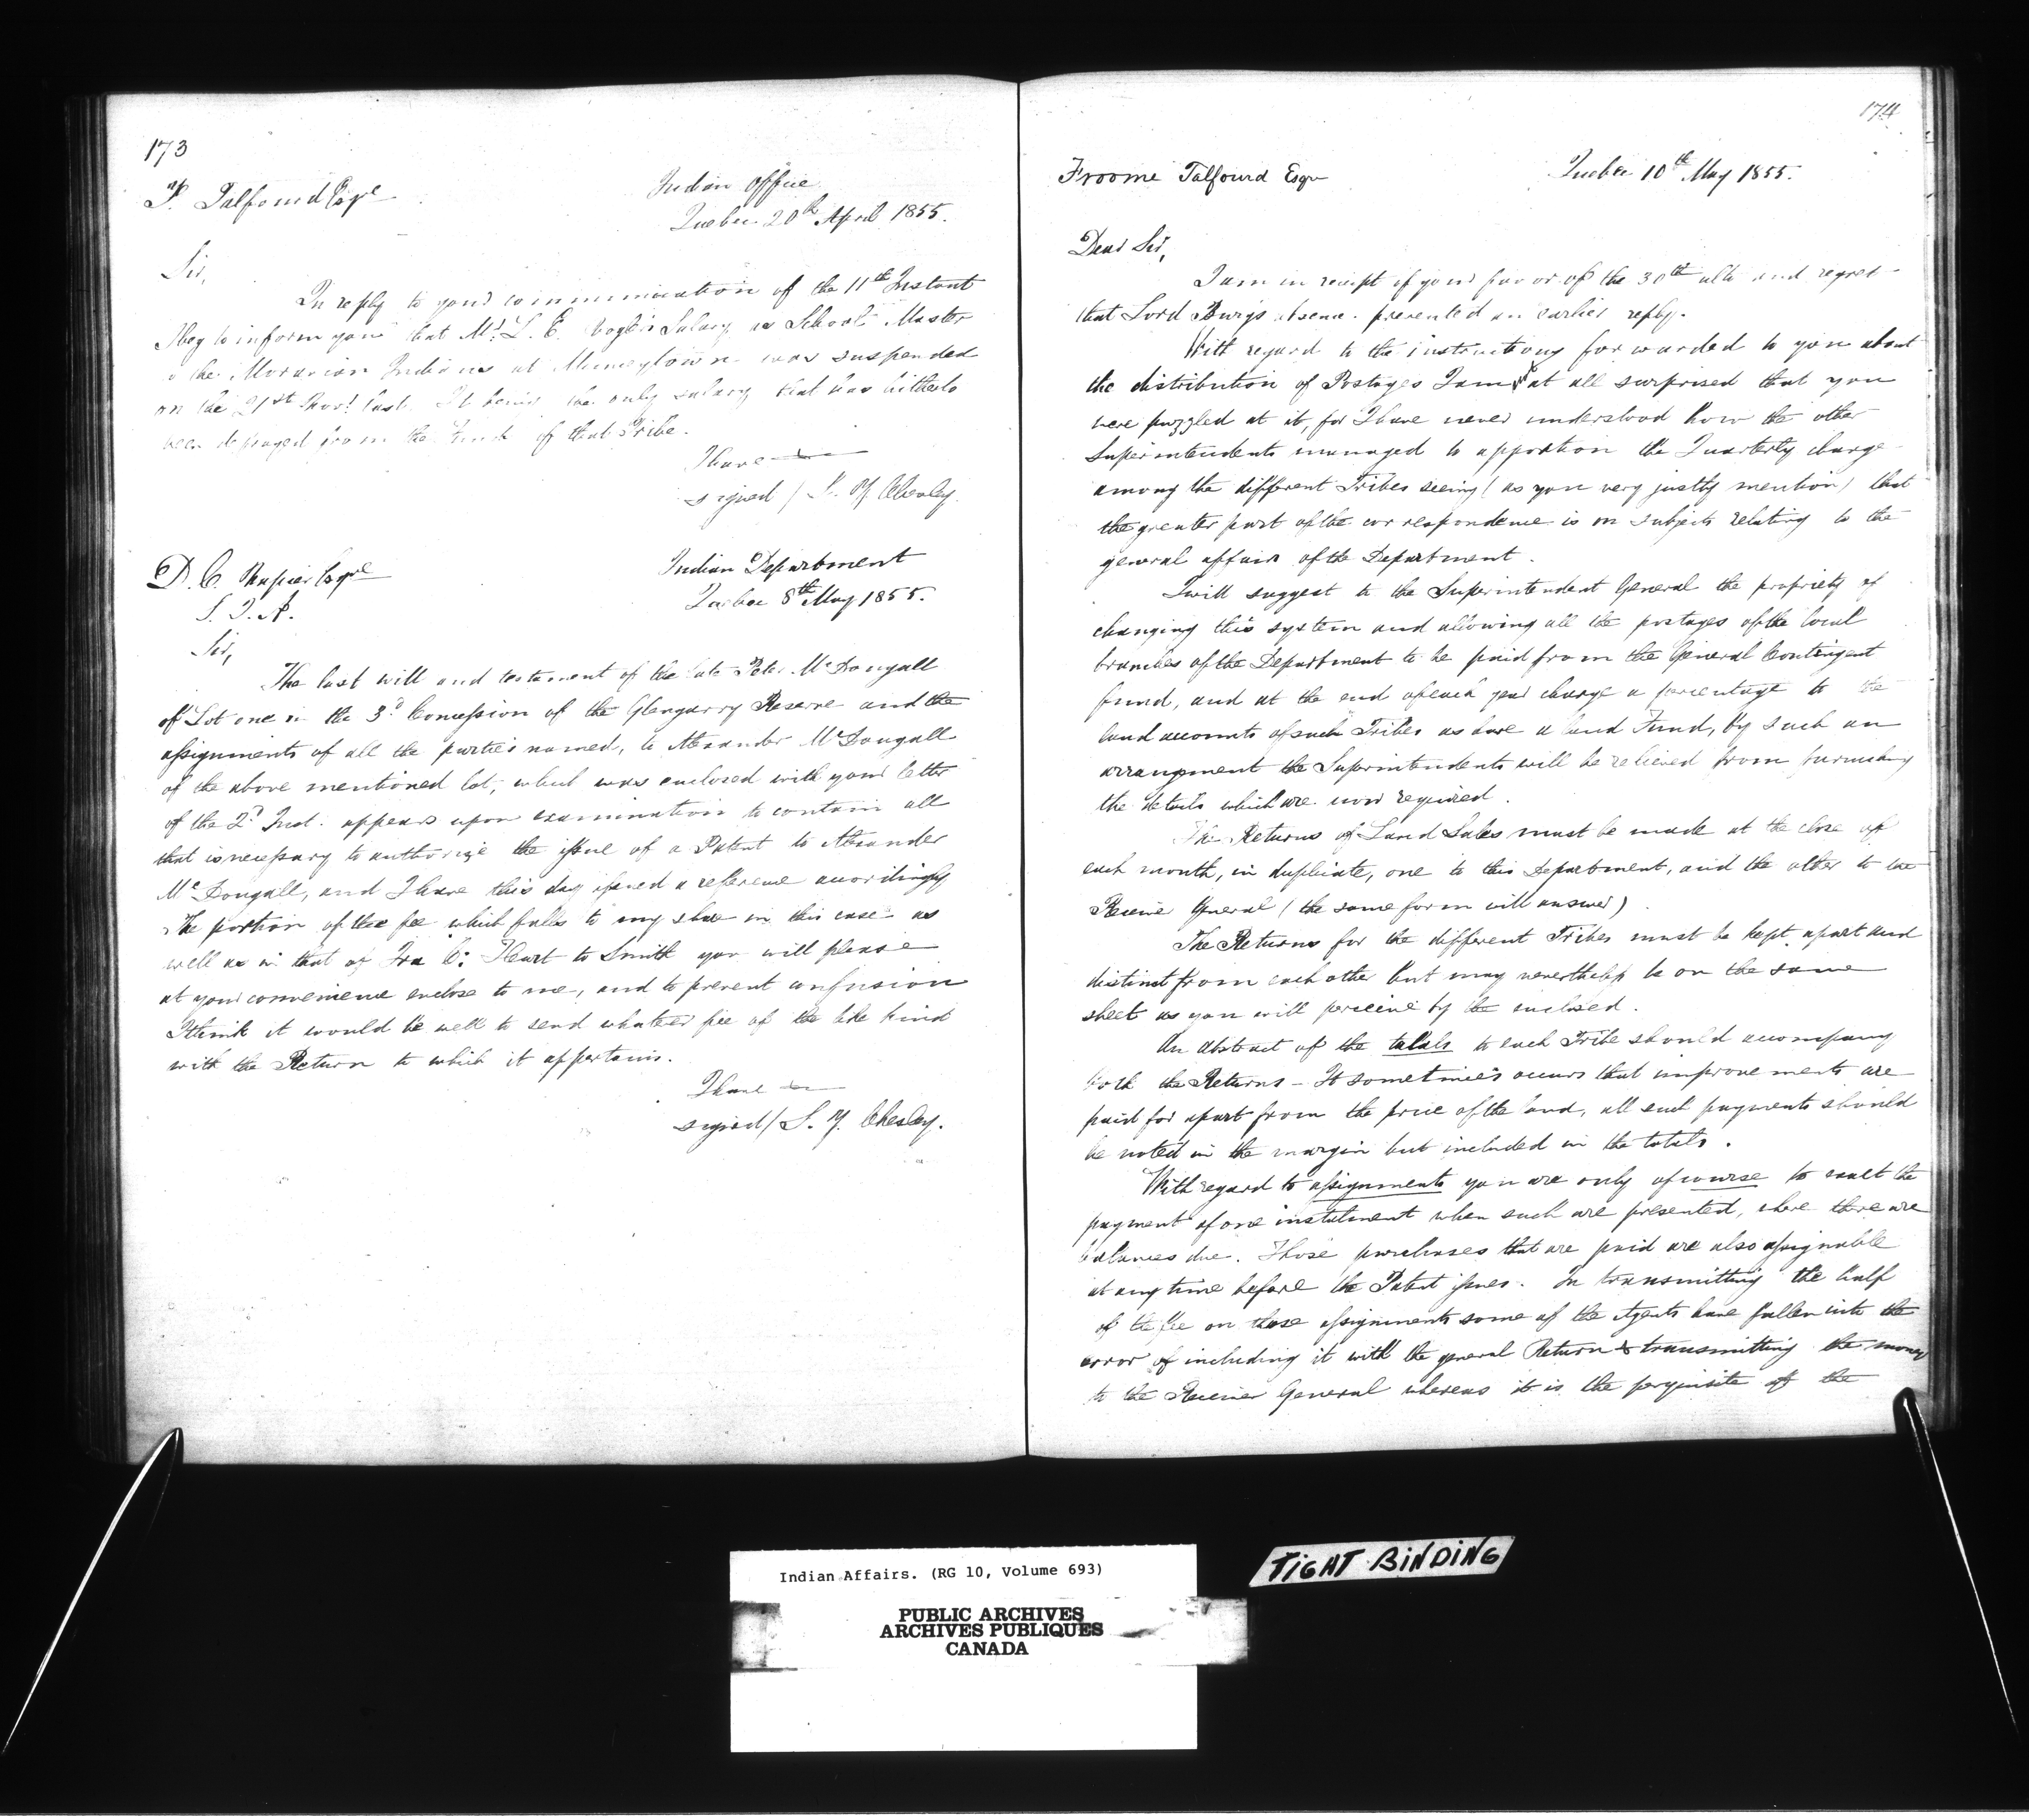 173
F. Talfourd Esqre
Indian Office
Quebec 20th April 1855.
Sir,
In reply to your communication of the 11th Instant
I beg to inform you that Mr. L. E. Salary as School Master
to the Moravian Indians at Munceytown was suspended
on the 21st Novr last. It being the only salary that has hitherto
been defrayed from the Funds of that Tribe.
I have
signed / S. Y. Chesley.
D. C. Napier Esqre
S. I. A.
Indian Department
Quebec 8th May 1855.
Sir,
The last will and testament of the late Peter McDougall
of Lot one in the 3d Concession of the Glengarry Reserve and the
assignments of all the parties named, to Alexander McDougall
of the above mentioned lot, which was enclosed with your letter
of the 2d Inst. appears upon examination to contain all
that is necessary to authorize the issue of a Patent to Alexander
McDougall, and I have this day issued a reference accordingly
The portion of the fee which falls to my share in this case as
well as in that of Ira C. Hart to Smith you will please
at your convenience enclose to me, and to prevent confusion
I think it would be well to send whatever fee of the like kind
with the Return to which it appertains.
I have
signed / S. Y. Chesley.
174
Froome Talfourd Esqr
Quebec 10th May 1855.
Dear Sir,
I am in receipt of your favor of the 30th ulto and regret
that Lord Bury's absence prevented an earlier reply.
With regard to the instructions forwarded to you about
the distribution of Postages I am at all surprised that you
were puzzled at it, for I have never understood how the other
Superintendents managed to apportion the Quarterly charge
among the different Tribes seeing (as you very justly mention) that
the greater part of the correspondence is on subjects relating to the
general affairs of the Department.
I will suggest to the Superintendent General the propriety of
changing this system and allowing all the postages of the local
branches of the Department to be paid from the General Contingent
fund, and at the end of each year charge a percentage to the
land accounts of such Tribes as have a land Fund, by such an
arrangement the Superintendents will be relieved from furnishing
the details which are now required.
The Returns of Land Sales must be made at the close of
each month, in duplicate, one to this Department, and the other to the
Receiver General (the same form will answer)
The Returns for the different Tribes must be kept apart and
distinct from each other but may nevertheless be on the same
sheet as you will perceive by the enclosed.
An abstract of the totals to each Tribe should accompany
both the Returns - It sometimes occurs that improvements are
paid for apart from the price of the land, all such payments should
be noted in the margin but included in the totals.
With regard to assignments you are only of course to exact the
payment of one instalment when such are presented, where there are
balances due. Those purchases that are paid are also assignable
at any time before the Patent issues. In transmitting the half
of the fee on those assignments some of the Agents have fallen into the
error of including it with the general Return & transmitting the money
to the Receiver General whereas it is the perquisite of the
Indian Affairs. (RG 10, Volume 693)
TIGHT BINDING
PUBLIC ARCHIVES
ARCHIVES PUBLIQUES
CANADA